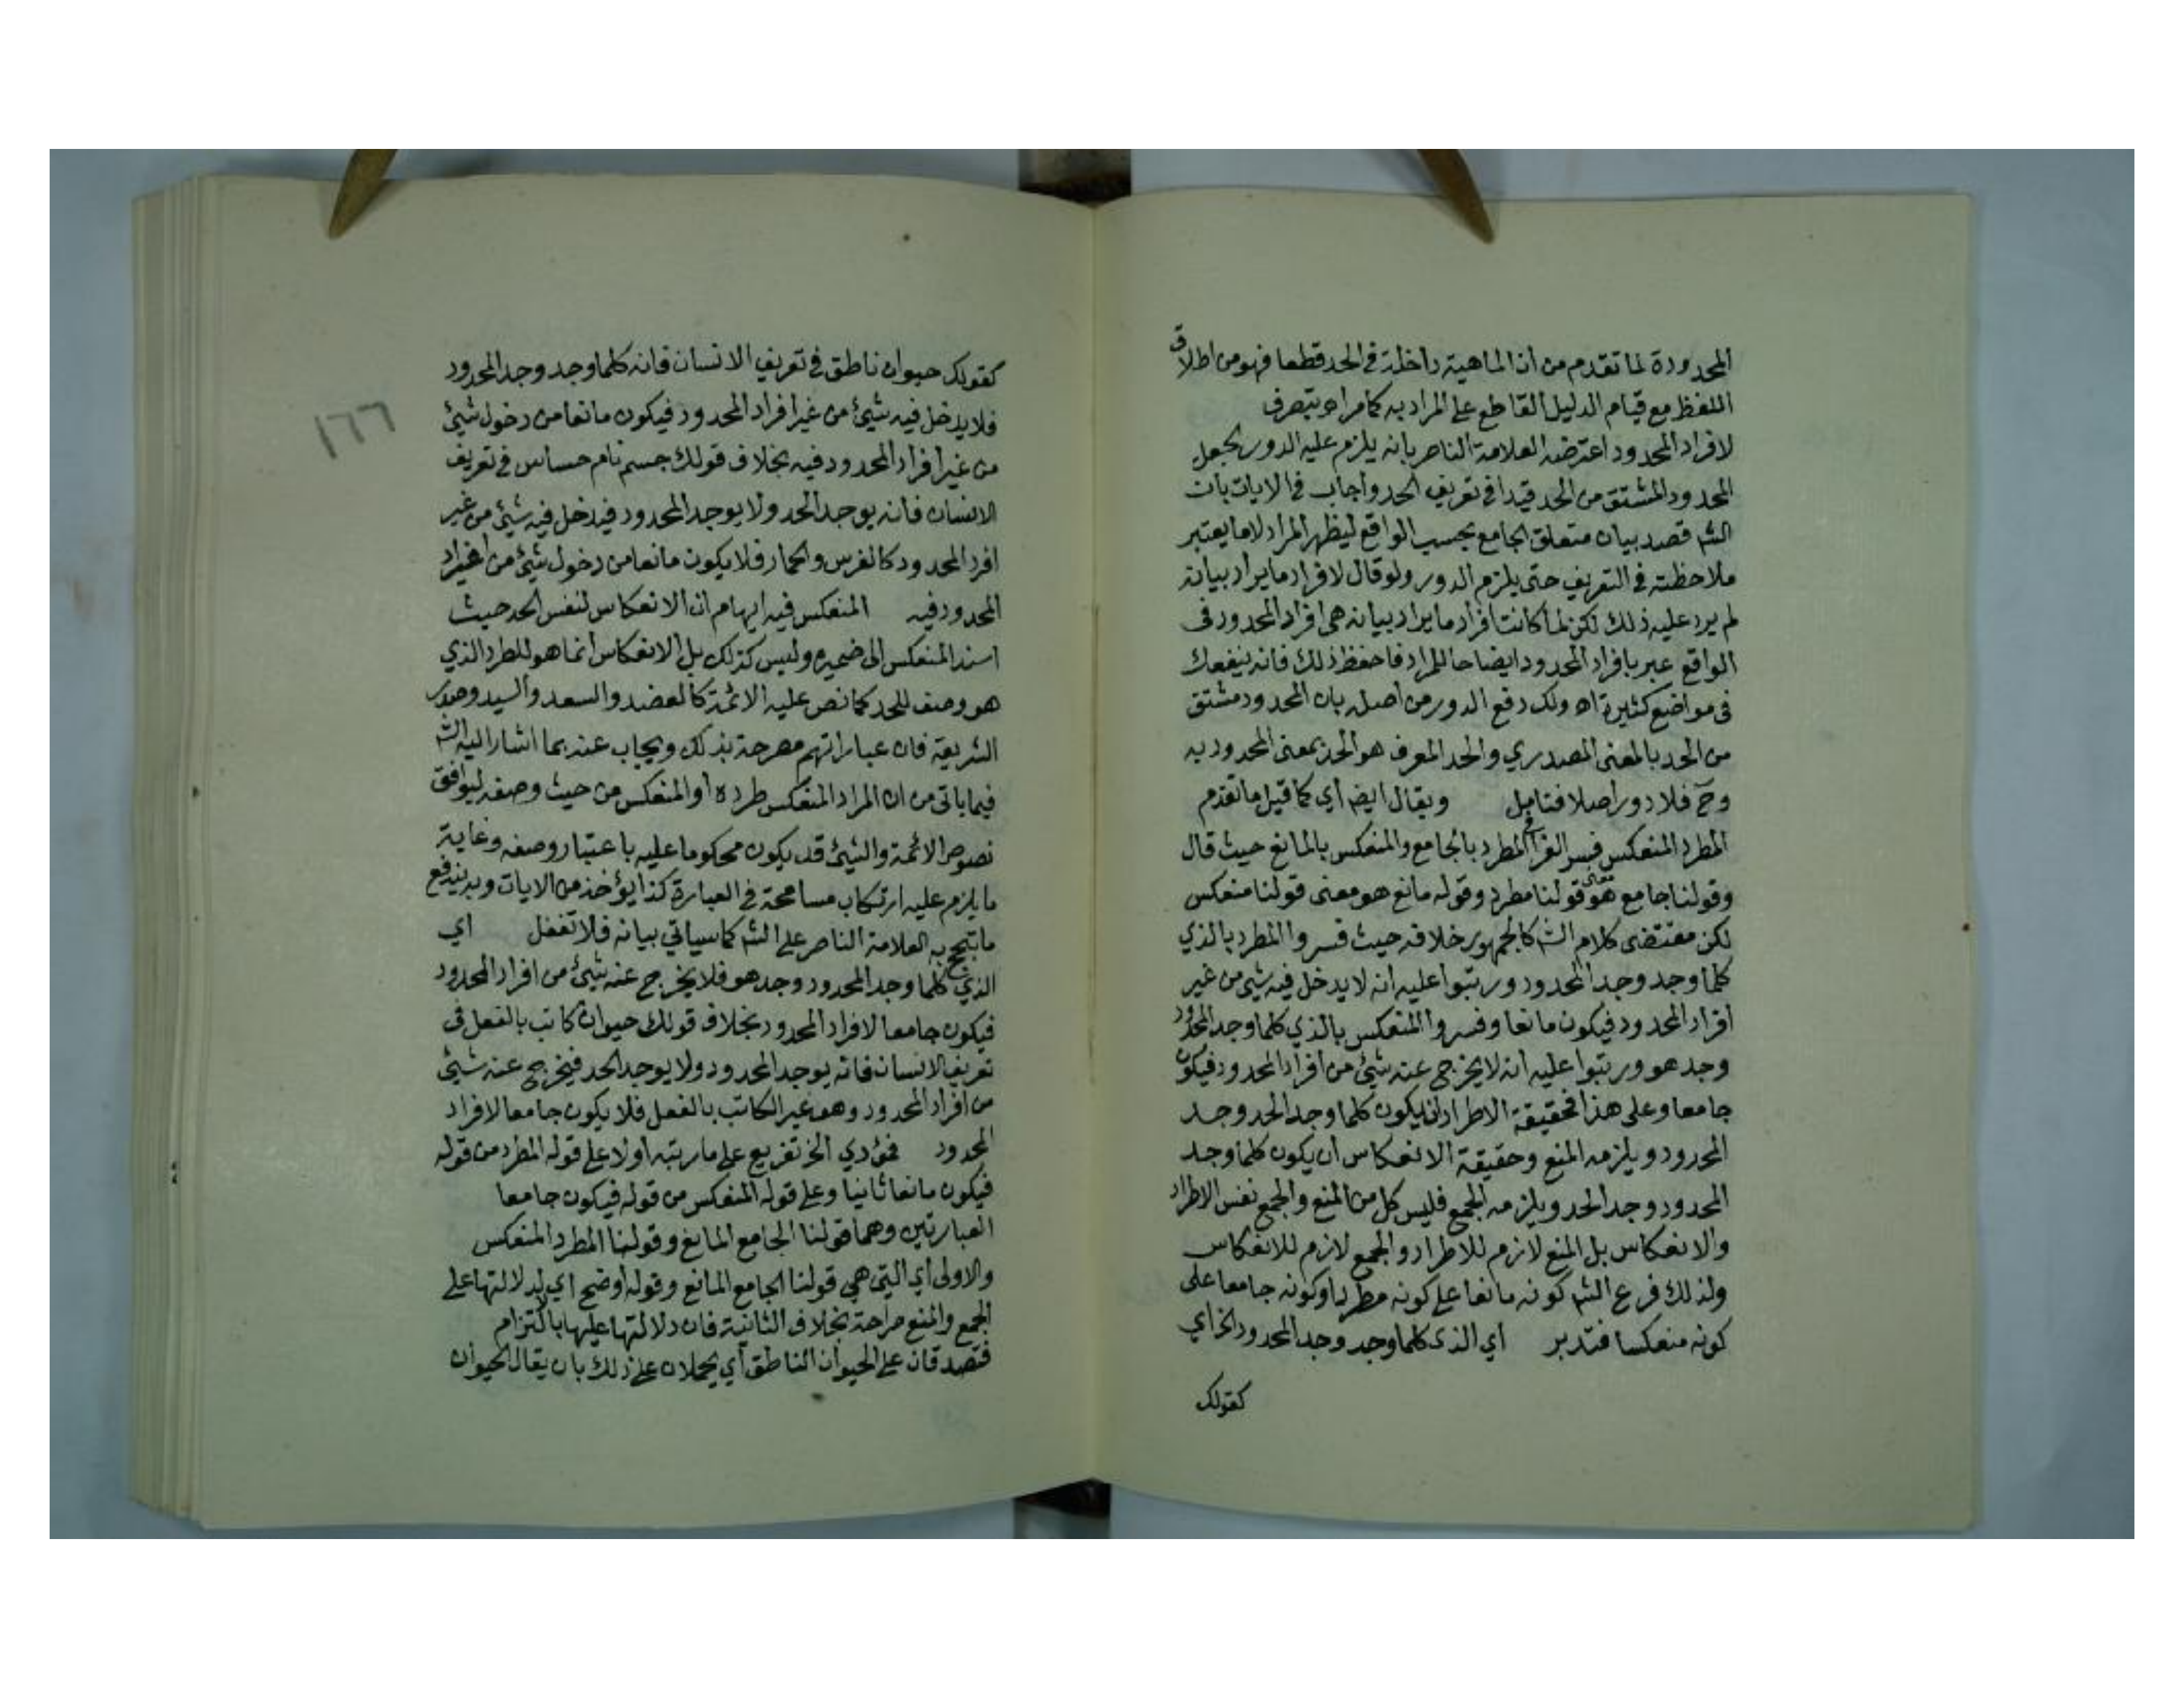 المحدودة لما تقدم من ان الماهية داخلة في الحد قطعا فهو من اطلاق
اللفظ مع قيام الدليل القاطع على المراد به كما مراه بتصرف
لافراد المحدود اعترضه العلامة الناصر بانه يلزم عليه الدور بجعل
المحدود المشتق من الحد قيدا في تعريف الحد واجاب في الايات بان
الشم قصد بيان متعلق الجامع بحسب الواقع ليظهر المراد لا ما يعتبر
ملاحظته في التعريف حتى يلزم الدور ولو قال لافراد ما يراد بيانه
لم يرد عليه ذلك لكن لما كانت افراد ما يراد بيانه هي افراد المحدود في
الواقع عبر بافراد المحدود ايضاحا للمراد فاحفظ ذلك فانه ينفعك
في مواضع كثيرة اه ولك دفع الدور من اصله بان المحدود مشتق
من الحد بالمعنى المصدري والحد المعرف هو الحد بمعنى المحدود به
وح فلا دور اصلا فتامل ويقال ايضم أي كما قيل ما تقدم
المطرد المنعكس فسر القرافي المطرد بالجامع والمنعكس بالمانع حيث قال
وقولنا جامع هو معنى قولنا مطرد وقوله مانع هو معنى قولنا منعكس
لكن مقتضى كلام الشم كالجمهور خلافه حيث فسروا المطرد بالذي
كلما وجد وجد المحدود ورتبوا عليه انه لا يدخل فيه شيئ من غير
افراد المحدود فيكون مانعا وفسروا المنعكس بالذي كلما وجد المحدود
وجد هو ورتبوا عليه انه لا يخرج عنه شيئ من افراد المحدود فيكون
جامعا وعلى هذا فحقيقة الاطراد ان يكون كلما وجد الحد وجد
المحدود ويلزمه المنع وحقيقة الانعكاس ان يكون كلما وجد
المحدود وجد الحد ويلزمه الجمع فليس كل من المنع والجمع نفس الاطراد
والانعكاس بل المنع لازم للاطراد والجمع لازم للانعكاس
ولذلك فرع الشم كونه مانعا على كونه مطردا وكونه جامعا على
كونه منعكسا فتدبر أي الذي كلما وجد وجد المحدود الخ اي
كقولك
كقولك حيوان ناطق في تعريف الانسان فانه كلما وجد وجد المحدود
فلا يدخل فيه شيئ من غير افراد المحدود فيكون مانعا من دخول شيئ
من غير افراد المحدود فيه بخلاف قولك جسم نام حساس في تعريف
الانسان فانه يوجد الحد ولا يوجد المحدود فيدخل فيه شيئ من غير
افرد المحدود كالفرس والحمار فلا يكون مانعا من دخول شيئ من افراد
المحدود فيه المنعكس فيه ايهام ان الانعكاس لنفس الحد حيث
اسند المنعكس الى ضميره وليس كذلك بل الانعكاس انما هو للطرد الذي
هو وصف للحد كما نص عليه الائمة كالعضد والسعد والسيد وصدر
الشريعة فان عباراتهم مصرحة بذلك ويجاب عنه بما اشار اليه الشم
فيما ياتي من ان المراد المنعكس طرده أو المنعكس من حيث وصفه ليوافق
نصوص الائمة والشيئ قد يكون محكوما عليه باعتبار وصفه وغاية
ما يلزم عليه ارتكاب مسامحة في العبارة كذا يؤخذ من الايات وبه يندفع
ما تبجح به العلامة الناصر على الشم كما سياتي بيانه فلا تغفل اي
الذي كلما وجد المحدود وجد هو فلا يخرج عنه شيئ من افراد المحدود
فيكون جامعا لافراد المحدود بخلاف قولك حيوان كاتب بالفعل في
تعريف الانسان فانه يوجد المحدود ولا يوجد الحد فيخرج عنه شيئ
من افراد المحدود وهو غير الكاتب بالفعل فلا يكون جامعا لافراد
المحدود فمؤدي الخ تفريع على ما رتبه اولا على قوله المطرد من قوله
فيكون مانعا ثانيا وعلى قوله المنعكس من قوله فيكون جامعا
العبارتين وهما قولنا الجامع المانع وقولنا المطرد المنعكس
والاولى أي التي هي قولنا الجامع المانع وقوله اوضح اي لدلالتها على
الجمع والمنع صراحة بخلاف الثانية فان دلالتها عليها بالتزام
فتصدقان على الحيوان الناطق أي يحملان على ذلك بان يقال الحيوان
١٦٦